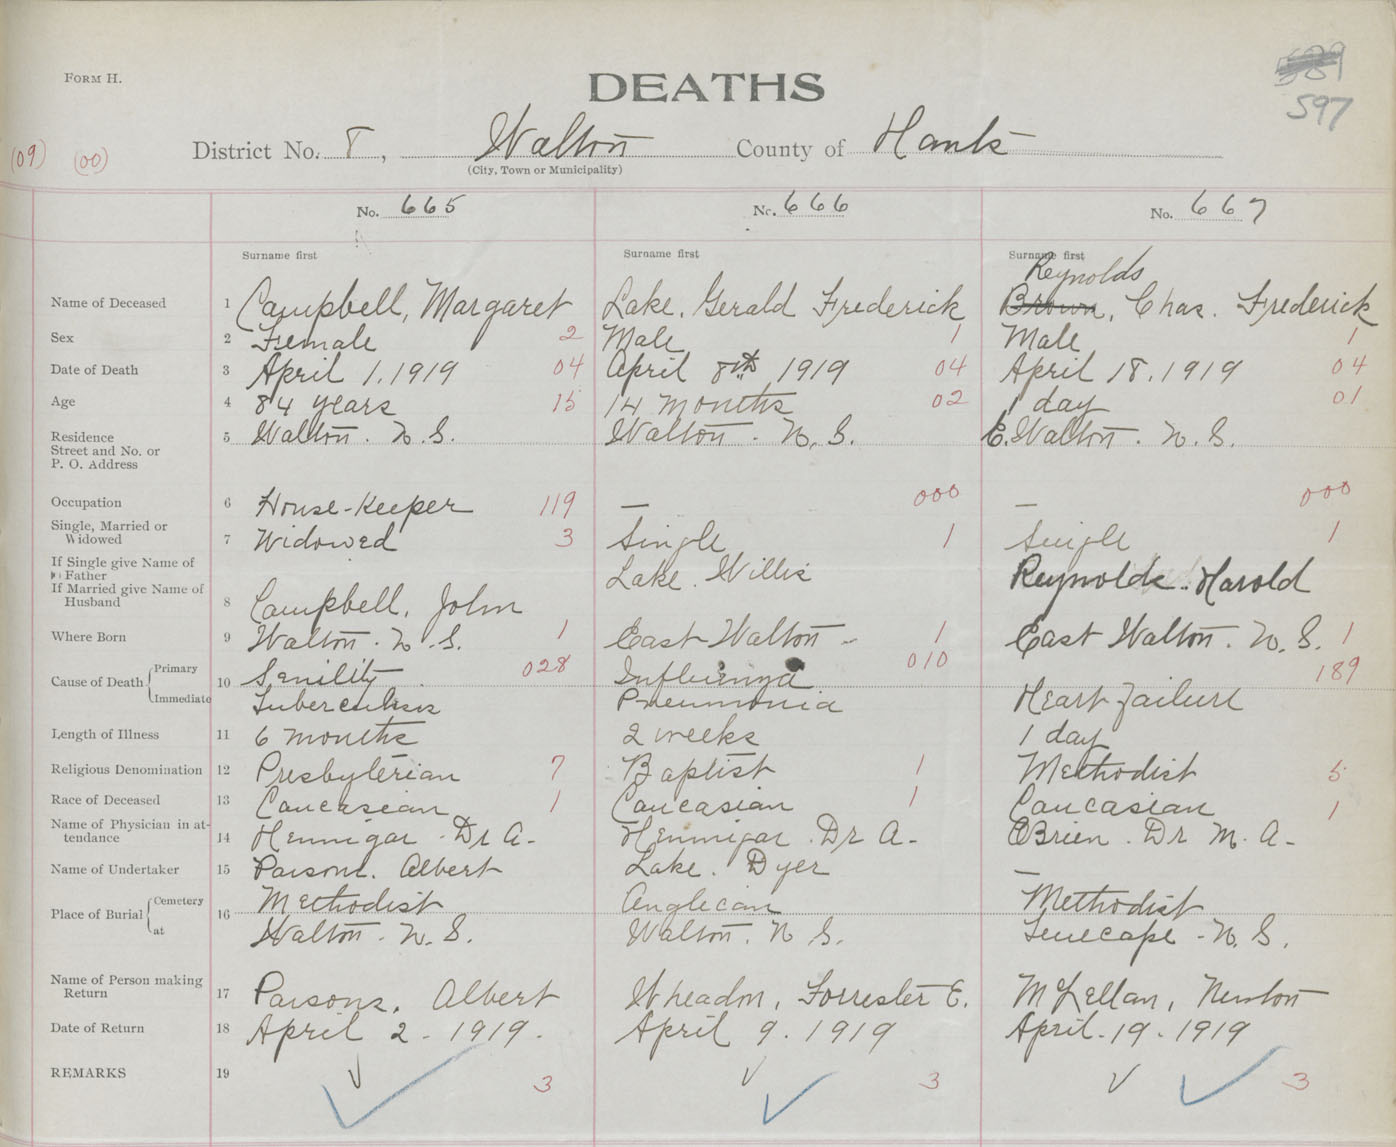 FORM H.
589
597
DEATHS
(09) (00) District No. 8, Walton County of Hants
(City, Town or Municipality)
No. 665 No. 666 No. 667
Surname first Surname first Surname first
Reynolds
Name of Deceased 1 Campbell, Margaret Lake, Gerald Frederick Brown, Chas. Frederick
Sex 2 Female 2 Male 1 Male 1
Date of Death 3 April 1, 1919 04 April 8th, 1919 04 April 18, 1919 04
Age 4 84 years 15 14 months 02 1 day 01
Residence 5 Walton. N.S. Walton. N.S. E. Walton. N.S.
Street and No. or
P. O. Address
Occupation 6 House-Keeper 119 — 000 — 000
Single, Married or
Widowed 7 Widowed 3 Single 1 Single 1
If Single give Name of
Father Lake. Willis Reynolds. Harold
If Married give Name of
Husband 8 Campbell, John
Where Born 9 Walton. N.S. 1 East Walton - 1 East Walton. N.S. 1
Cause of Death Primary 10 Senility 028 Influenza 010 189
Immediate Tuberculosis Pneumonia Heart Failure
Length of Illness 11 6 months 2 weeks 1 day
Religious Denomination 12 Presbyterian 7 Baptist 1 Methodist 5
Race of Deceased 13 Caucasian 1 Caucasian 1 Caucasian 1
Name of Physician in at-
tendance 14 Hennigar. Dr A- Hennigar. Dr A- OBrien. Dr M. A-
Name of Undertaker 15 Parsons. Albert Lake. Dyer —
Place of Burial Cemetery 16 Methodist Anglecan Methodist
at Walton. N.S. Walton. N S. Tenecape - N.S.
Name of Person making
Return 17 Parsons, Albert Wheadon, Forrester E. McLellan, Newton
Date of Return 18 April 2. 1919. April 9. 1919 April. 19. 1919
REMARKS 19 3 3 3